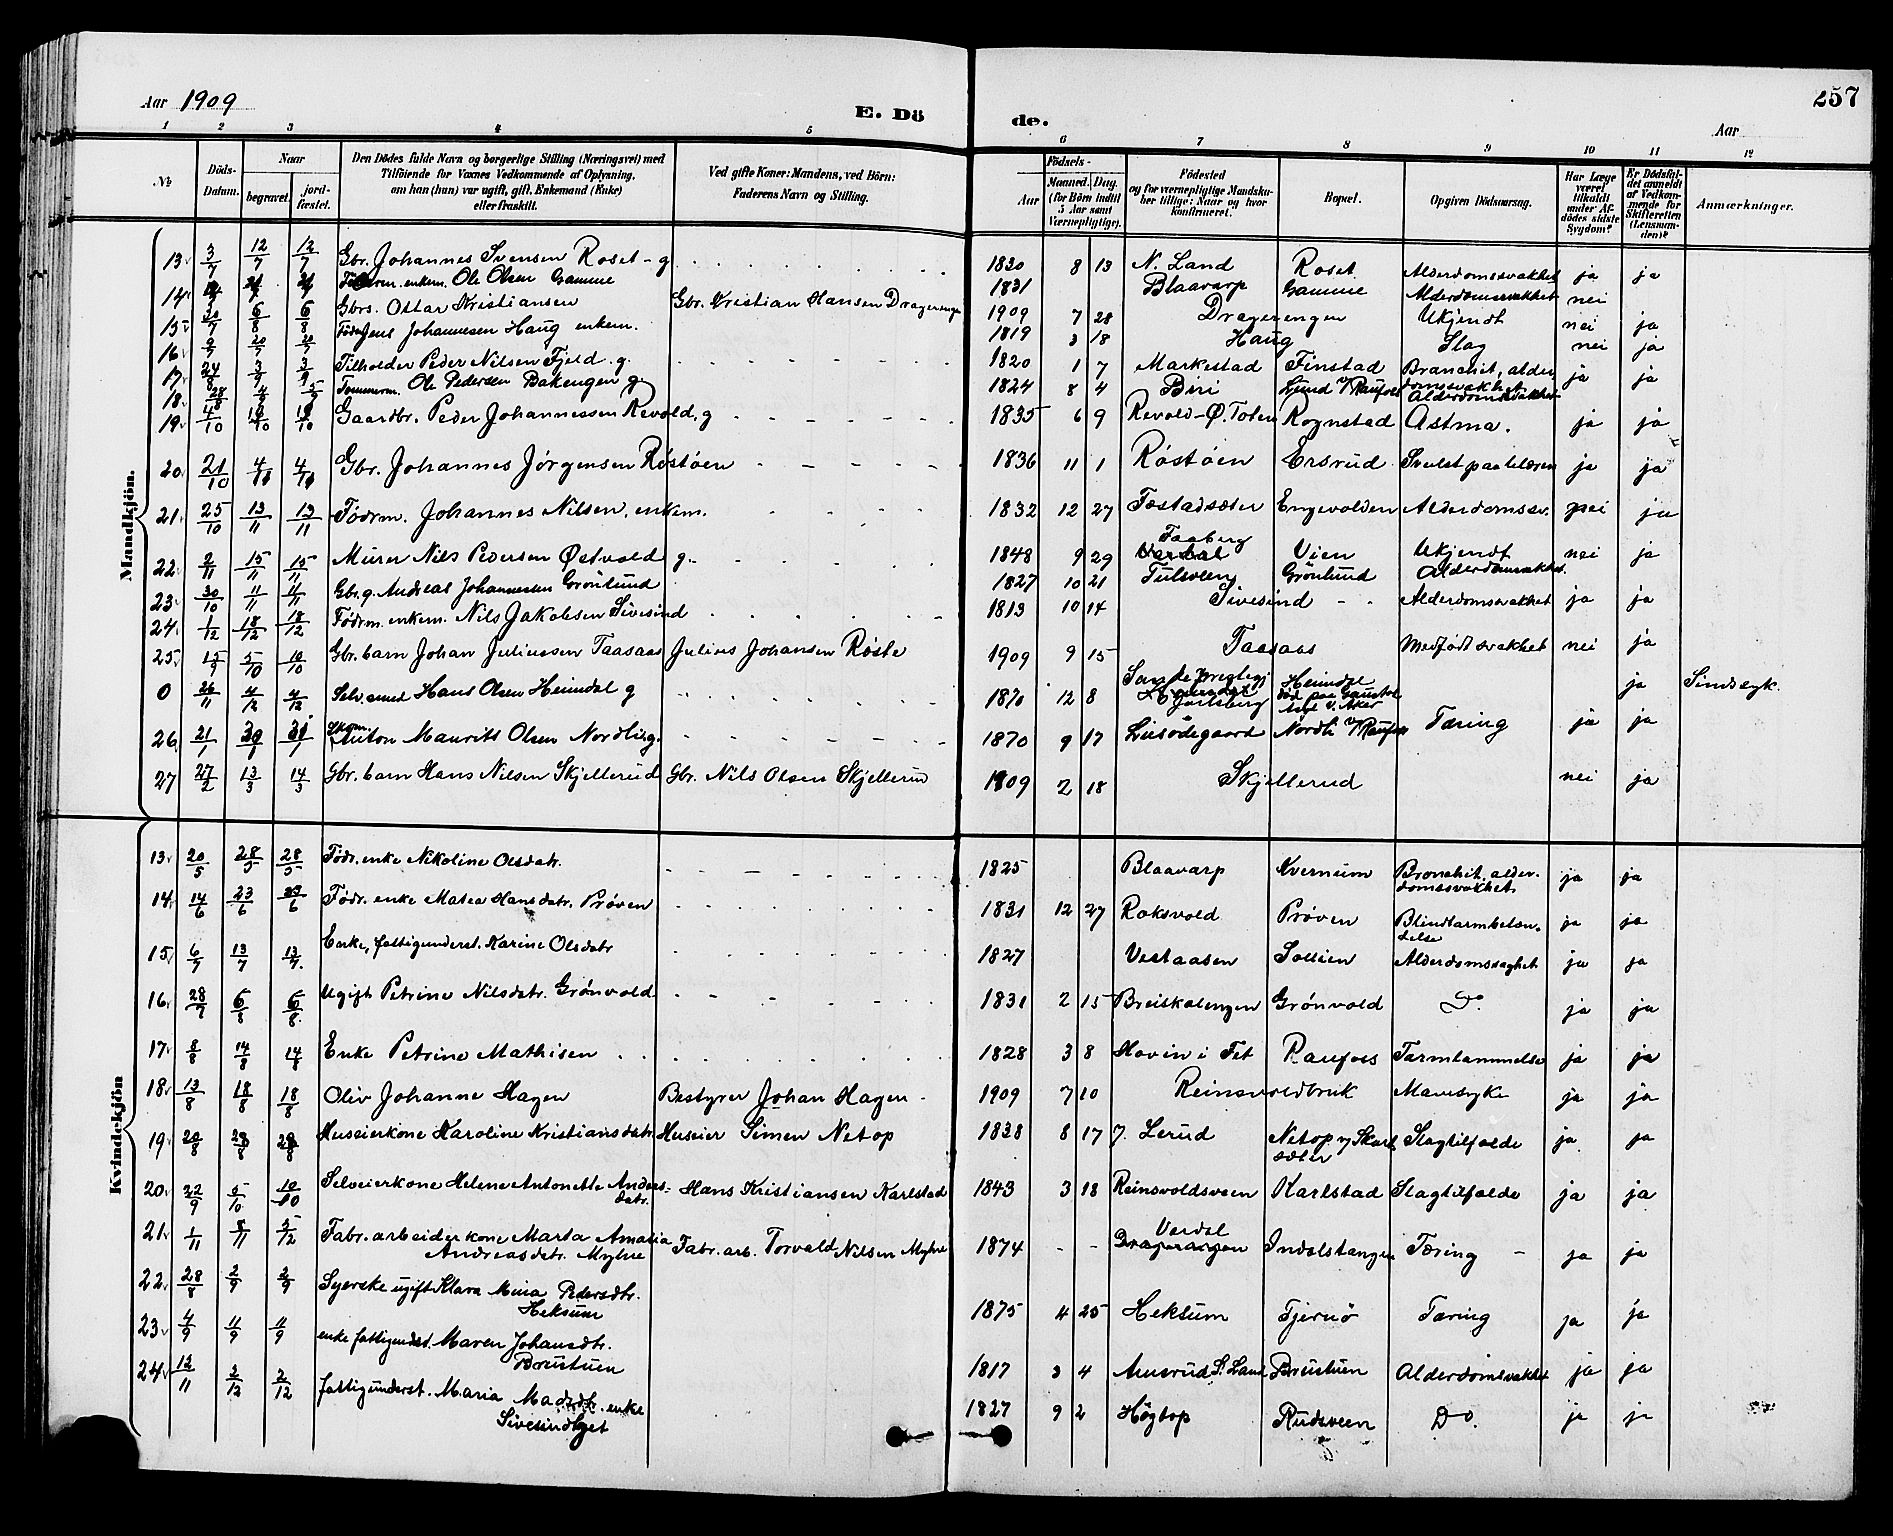 Aar 1909
E. Dö
de.
257
Aar
1 2 3 4 5 6 7 8 9 10 11 12
No
Döds-Datum.
Naar
begravet.
jord-fæstet.
Den Dödes fulde Navn og borgerlige Stilling (Næringsvei) med
Tilföiende for Voxnes Vedkommende af Oplysning,
om han (hun) var ugift, gift, Enkemand (Enke)
eller fraskilt.
Ved gifte Koner: Mandens, ved Börn:
Faderens Navn og Stilling.
Födsels-
Aar
Maaned. Dag.
(for Börn indtil
5 Aar samt
Værnepligtige).
Födested
og for værnepligtige Mandsku-
ber tillige: Naar og hvor
konfirmeret.
Bopæl.
Opgiven Dödsaarsag.
Har Læge
været
tilkaldt
under Af-
dödes sidste
Sygdom?
Er Dödsfal-
det anmeldt
af Vedkom-
mende for
Skifteretten
(Lensman-
den)?
Anmærkninger.
Mandkjön.
13 3/7 12/7 12/7 Gbr. Johannes Svensen Roset - g 1830 8 13 N. Land Roset Alderdomssvakhet ja ja
14 enkem. Ole Olsen Gamme 1831 Blaavarp Gamme Alderdomssvakhet nei
15 30/7 6/8 6/8 Gbrs. Ottar Kristiansen Gbr. Kristian Hansen Dragerengen 1909 7 28 Dragerengen Ukjendt nei ja
16 9/7 20/7 20/7 Jens Johannesen Haug enkem. 1819 3 18 Haug Slag nei ja
17 24/8 3/9 3/9 Tilholder Peder Nilsen Fjeld g. 1820 1 7 Markestad Finstad Bronchit, alderdomssvakhet ja ja
18 28/8 4/9 5/9 Tømmerm. Ole Pedersen Bakengen g. 1824 8 4 Biri Lund v/ Raufos Alderdomssvakhet
19 4/10 Gaardbr. Peder Johannessen Revold, g 1835 6 9 Revold - Ø. Toten Rognstad Astma. ja ja
20 21/10 4/11 4/11 Gbr. Johannes Jørgensen Røstøen 1836 11 1 Røstøen Ersrud Svulst paa leveren ja ja
21 25/10 13/11 13/11 Fødrm. Johannes Nilsen, enkem. 1832 12 27 Tostadsæter Engevolden Alderdomssv. nei ja
22 2/11 15/11 15/11 Murer Nils Pedersen Østvold g. 1848 9 29 Faaberg Vien Ukjendt nei ja
23 30/10 11/11 11/11 Gbr. g. Andreas Johannessen Grønlund 1827 10 21 Tulsveen Grönlund Alderdomssvakhet.
24 1/12 18/12 18/12 Fødrm. enkem. Nils Jakobsen Sivesind 1813 10 14 Sivesind - - Alderdomssvakhet ja ja
25 15/9 5/10 10/10 Gbr. barn Johan Juliussen Taasaas Julius Johansen Røste 1909 9 15 Taasaas Medfødt svakhet nei ja
0 26/11 4/12 4/12 Selv. Hans Olsen Heimdal g 1870 12 8 Sande prestegj. Jarlsberg Heimdal død paa Gaustad Asyl v. Aker ja Sindssyk.
26 21/1 30/1 31/1 Anton Maurits Olsen Nordli g. 1870 9 17 Lusødegaard Nordli v/ Raufos Tæring ja ja
27 27/2 13/3 14/3 Gbr. barn Hans Nilsen Skjellerud Gbr. Nils Olsen Skjellerud 1909 2 18 Skjellerud nei ja
Kvindekjön
13 20/5 28/5 28/5 Födr. enke Nikoline Olsdatr. 1825 Blaavarp Kvernum Bronchit, alderdomssvakhet ja ja
14 14/6 23/6 23/6 Födr. enke Matea Hansdatr. Prøven 1831 12 27 Roksvold Prøven Blindtarmbetændelse ja ja
15 6/7 13/7 13/7 Enke, fattigunderst. Karine Olsdatr 1827 Vestaasen Sollien Alderdomssvaghet ja ja
16 28/7 6/8 6/8 Ugift Petrine Nilsdatr. Grønvold 1831 2 15 Breiskalengen Grønvold Do. ja ja
17 8/8 14/8 14/8 Enke Petrine Mathisen 1828 3 8 Hovin i Fet Raufos Tarmlammelse ja ja
18 13/8 18/8 18/8 Oliv Johanne Hagen Bestyrer Johan Hagen 1909 7 10 Reinsvoldbruk Mavesyke ja ja
19 20/8 28/8 28/8 Huseierkone Karoline Kristiansdatr. Huseier Simen Netop 1838 8 17 J. Lerud Netop v/ Skarlsæter Slagtilfælde ja ja
20 22/9 5/10 10/10 Selveierkone Helene Antonette Andersdatr. Hans Kristiansen Karlstad 1843 3 18 Reinsvoldsveen Karlstad Slagtilfælde ja ja
21 1/11 8/11 5/12 Fabr. arbeiderkone Marta Amalia Andreasdatr. Myhre Fabr. arb. Torvald Nilsen Myhre 1874 - - Verdal Indalstangen Tæring - ja ja
22 28/8 2/9 2/9 Syerske ugift Klara Mina Pedersdtr. Heksum 1875 4 25 Heksum Tjernö Tæring ja ja
23 4/9 11/9 11/9 enke fattigunderst. Maren Johansdtr. Brustuen 1817 3 4 Amsrud S. Land Brustuen Alderdomsvakhet ja ja
24 12/11 2/12 2/12 fattigunderst. Maria Madsdtr. enke Sivesindhget 1827 9 2 Høgtop Rudsveen Do. ja ja